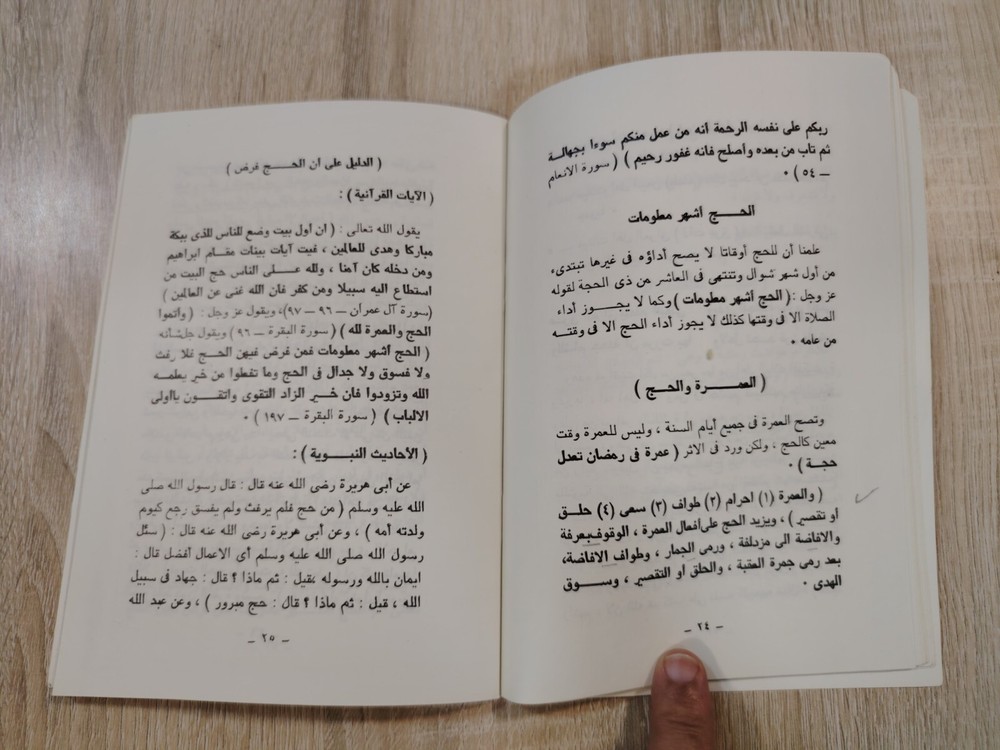 ربكم على نفسه الرحمة أنه من عمل منكم سوءا بجهالــة
ثم تاب من بعده وأصلح فانه غفور رحيم ) ( سورة الانعام
ــ ٥٤ ) ٠
الحـــج أشهر معلومات
علمنا أن للحج أوقاتا لا يصح أداؤه فى غيرها تبتدىء
من أول شهر شوال وتنتهى فى العاشر من ذى الحجة لقوله
عز وجل : ( الحج أشهر معلومات ) وكما لا يجــوز أداء
الصلاة الا فى وقتها كذلك لا يجوز أداء الحج الا فى وقتــه
من عامه ٠
( العمــرة والحـج )
وتصح العمرة فى جميع أيام السنة ، وليس للعمرة وقت
معين كالحج ، ولكن ورد فى الاثر ( عمرة فى رمضان تعدل
حجة ) ٠
( والعمرة (١) احرام (٢) طواف (٣) سعى (٤) حلــق
او تقصير ) ، ويزيد الحج على افعال العمرة ، الوقوف بعرفة
والافاضة الى مزدلفة ، ورمى الجمار ، وطواف الافاضة،
بعد رمى جمرة العقبة ، والحلق او التقصير ، وســـوق
الهدى ٠
ــ ٢٤ ــ
( الدليل على أن الحـــج فرض )
( الآيات القرآنية ) :
يقول الله تعالى : ( ان أول بيت وضع للناس للذى ببكة
مباركا وهدى للعالمين ، فيه آيات بينات مقــام ابراهيم
ومن دخله كان آمنا ، ولله عـــلى الناس حج البيت من
استطاع اليه سبيلا ومن كفر فان الله غنى عن العالمين )
(سورة آل عمران ــ ٩٦ ــ ٩٧)، ويقول عز وجل : ( وأتموا
الحج والعمرة لله ) ( سورة البقرة ــ ٩٦ ) ويقول جل شأنه
( الحج أشهر معلومات فمن فرض فيهن الحــج فلا رفث
ولا فسوق ولا جدال فى الحج وما تفعلوا من خير يعلمــه
الله وتزودوا فان خــير الزاد التقوى واتقــون ياأولى
الالباب ) ( سورة البقرة ــ ١٩٧ ) ٠
( الأحاديث النبـــوية ) :
عن أبى هريرة رضى الله عنه قال : قال رسول الله صلى
الله عليه وسلم ( من حج فلم يرفث ولم يفسق رجع كيوم
ولدته أمه ) ، وعن أبى هريرة رضى الله عنه قال : ( سئل
رسول الله صلى الله عليه وسلم أى الاعمال أفضل قال :
ايمان بالله ورسوله ،قيل : ثم ماذا ؟ قال : جهاد فى سبيل
الله ، قيل : ثم ماذا ؟ قال : حج مبرور ) ، وعن عبد الله
ــ ٢٥ ــ